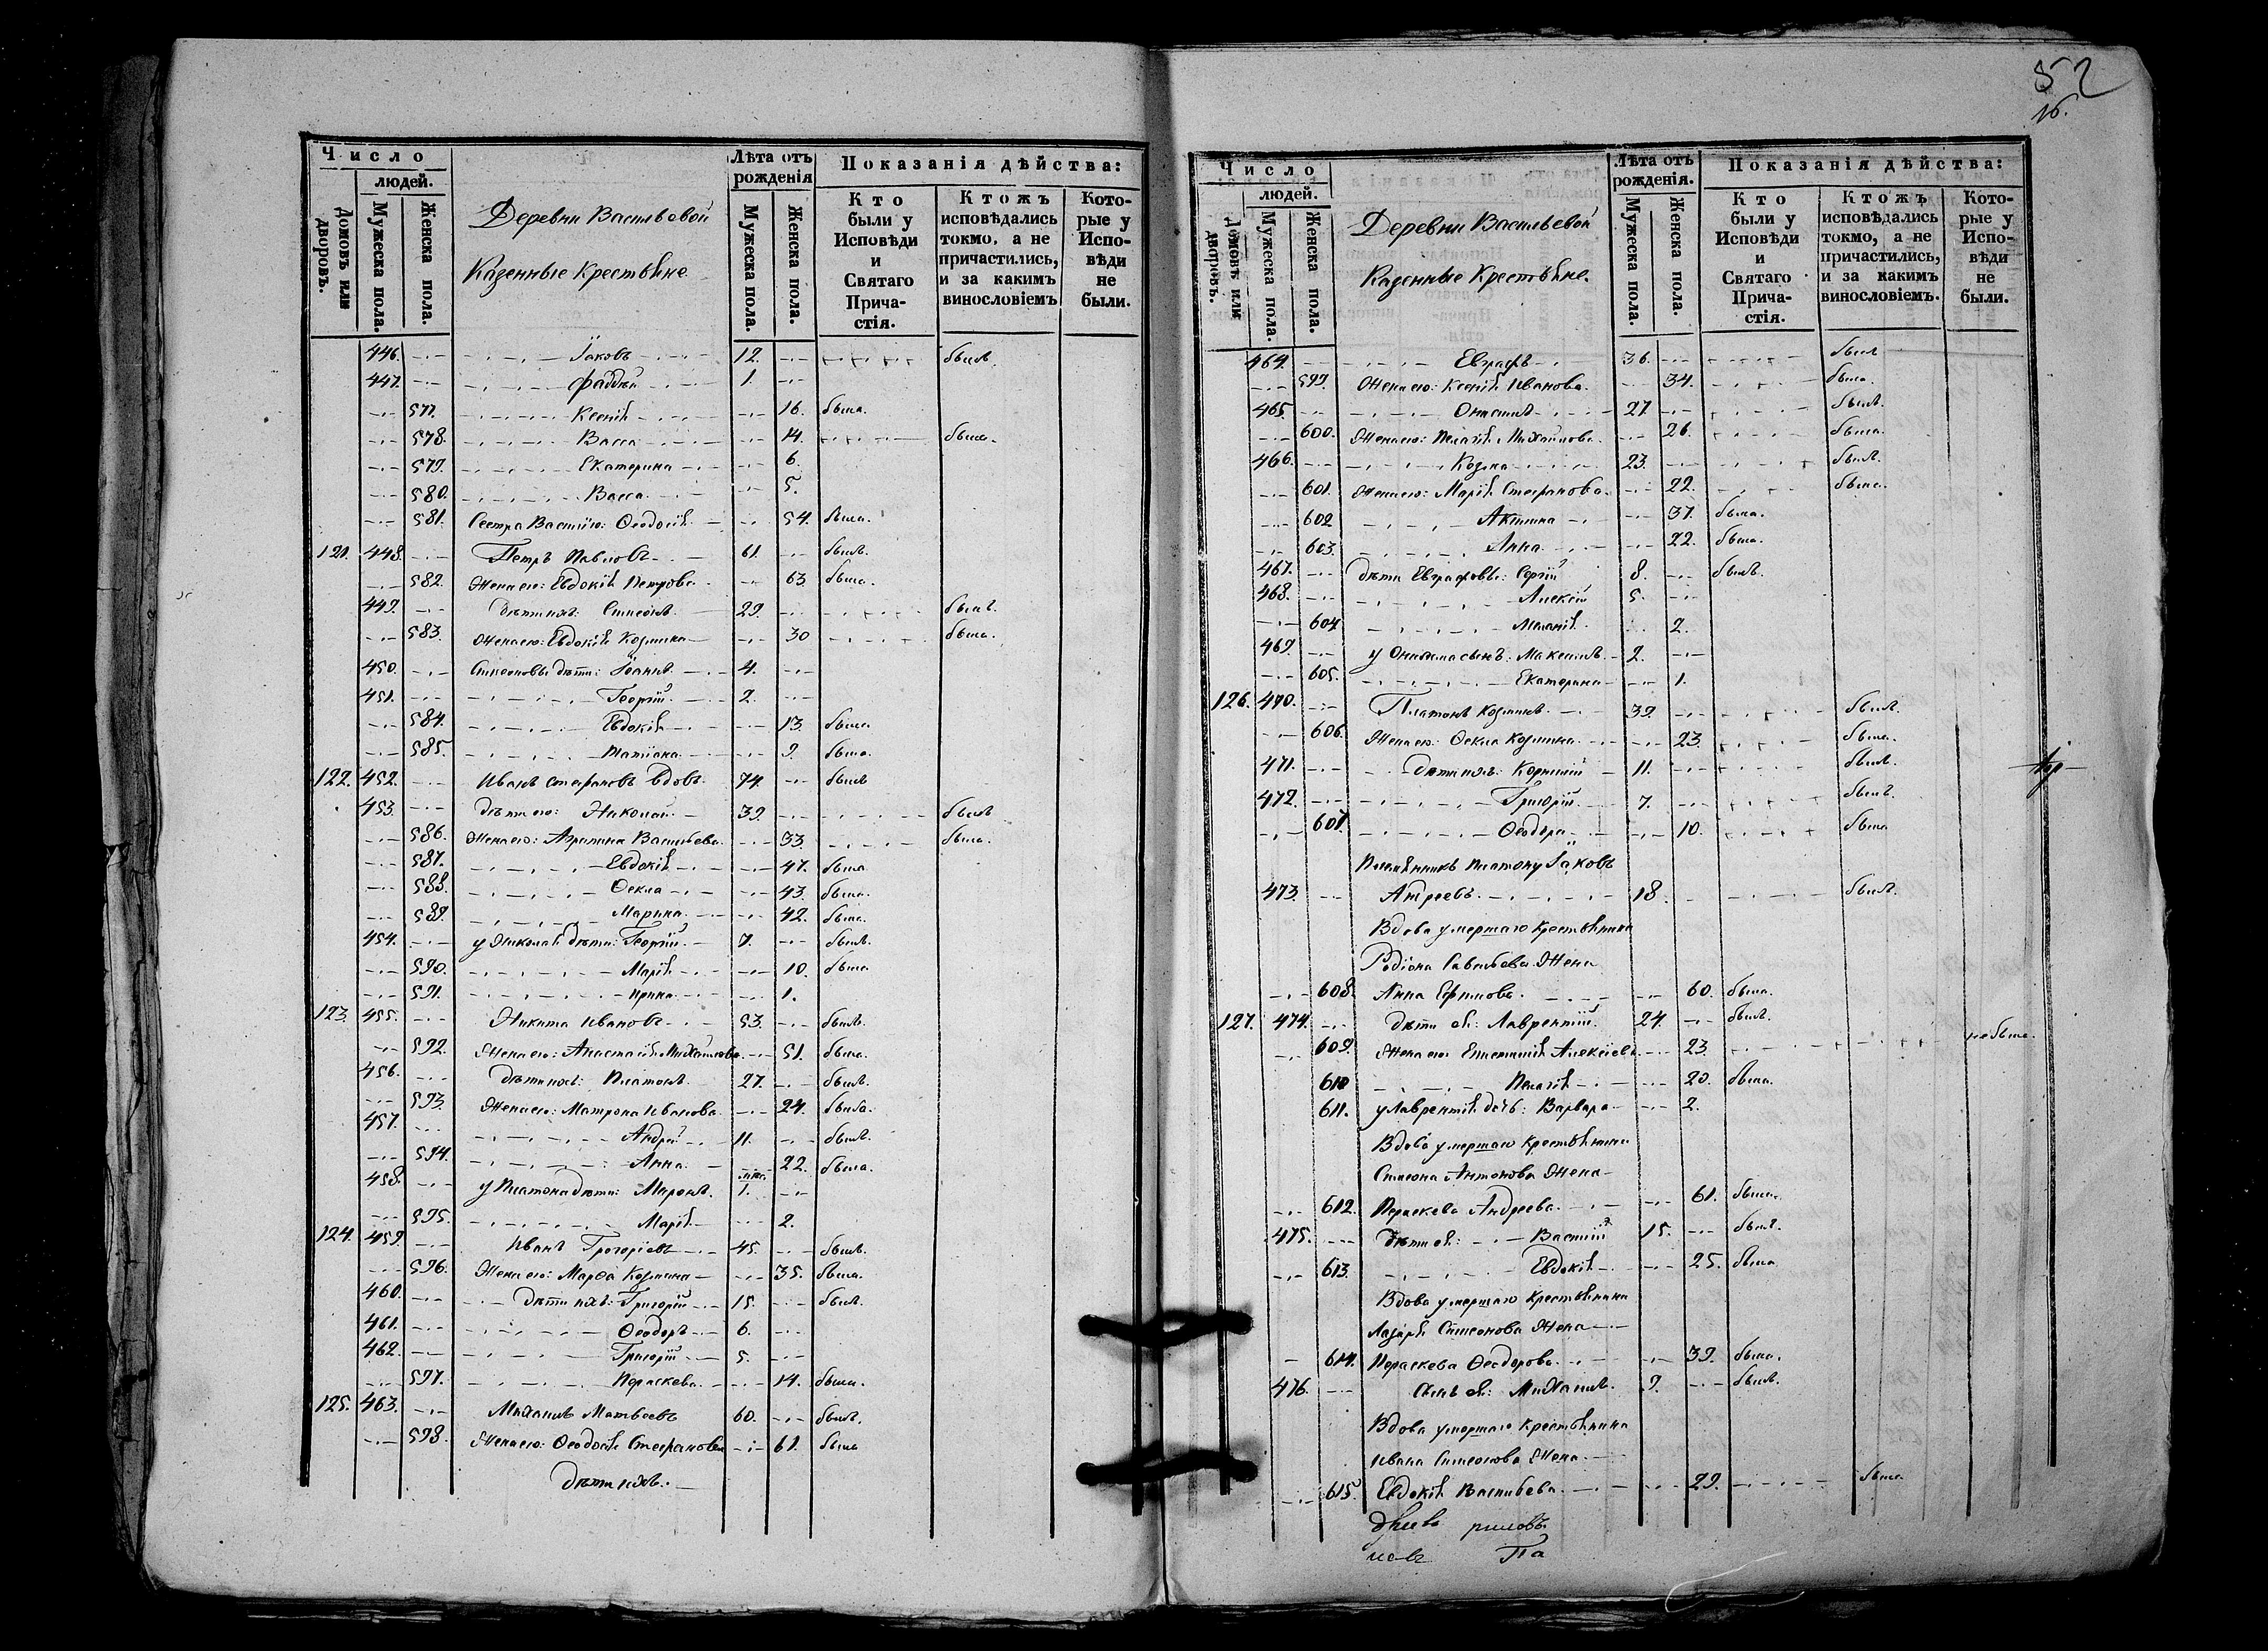 Число
людей.
Домовъ или дворовъ.
Мужеска пола.
Женска пола.
Деревни Васильевой
Казенные Крестьяне
Лѣта отъ рожденія
Мужеска пола.
Женска пола.
Показанія дѣйства:
Кто были у Исповѣди и Святаго Причастія.
Ктожъ исповѣдались токмо, а не причастились, и за какимъ винословіемъ
Которые у Исповѣди не были.
446. Іаковъ 12. былъ.
447. Фаддей 1.
577. Ксенія 16. была.
578. Васса 14. была.
579. Екатерина 6.
580. Васса 5.
581. Сестра Феодосія 54. была.
121. 448. Петръ Павловъ 61. былъ.
582. Жена его: Евдокія Петрова 63. была.
449. Дѣти ихъ: Симеонъ 29. былъ.
583. Жена его: Евдокія Козмина 30 была.
450. Симеоновы дѣти: Іоаннъ 4.
451. Георгій 2.
584. Евдокія 13. была.
585. Татіана 9. была.
122. 452. Иванъ Стефановъ вдовъ 74. былъ
453. Дѣти его: Николай 39. былъ
586. Жена его: Агрипина Васильева 33. была.
587. Евдокія 47. была
588. Фекла 43. была.
589. Марина 42. была.
454. у Николая дѣти: Георгій 7. былъ.
590. Марія 10. была
591. Ирина 1.
123. 455. Никита Ивановъ 53. былъ.
592. Жена его: Анастасія Михайлова 51. была.
456. Дѣти ихъ: Платонъ 27. былъ.
593. Жена его: Матрона Иванова 24. была.
457. Андрей 11. былъ.
594. Анна 22. была.
458. у Платона дѣти: Миронъ 1.
595. Марія 2.
124. 459. Иванъ Григоріевъ 45. былъ.
596. Жена его: Марѳа Козмина 35. была.
460. Дѣти ихъ: Григорій 15. былъ.
461. Ѳеодоръ 6.
462. Григорій 5.
597. Параскева 14. была.
125. 463. Михаилъ Матвеевъ 60. былъ.
598. Жена его: Ѳеодосія Стефанова 61. была
Дѣти ихъ:
52
16.
Число
людей.
Домовъ или дворовъ.
Мужеска пола.
Женска пола.
Деревни Васильевой
Казенные Крестьяне.
Лѣта отъ рожденія.
Мужеска пола.
Женска пола.
Показанія дѣйства:
Кто были у Исповѣди и Святаго Причастія.
Ктожъ исповѣдались токмо, а не причастились, и за какимъ винословіемъ.
Которые у Исповѣди не были.
464. Евграфъ 36. былъ
599. Жена его: Ксенія Иванова 34. была.
465. Онисимъ 27. былъ.
600. Жена его: Пелагія Михайлова 26. была.
466. Козма 23. былъ.
601. Жена его: Марія Стефанова 22. была.
602 Акилина 37. была.
603. Анна 22. была.
467. Дѣти Евграфовы: Сергій 8. былъ.
468. Алексій 5.
604 Меланія 2.
469. у Онисима сынъ: Максимъ 2.
605. Екатерина 1.
126. 470. Платонъ Козминъ 39. былъ.
606. Жена его: Ѳекла Козмина 23. была.
471. Дѣти ихъ: Корнилій 11. былъ.
472. Григорій 7. былъ.
607. Ѳеодора 10. была
Племянникъ Платону Іаковъ
473. Андреевъ 18. былъ.
Вдова умершаго Крестьянина
Родіона Савельева Жена
608. Анна Ефимова 60. была.
127. 474. Дѣти ея: Лаврентій 24. былъ.
609. Жена его Епистимія Алексіева 23. не была.
610 Пелагія 20. была.
611. у Лаврентія дочь: Варвара 2.
Вдова умершаго Крестьянина
Симеона Антонова Жена
612. Параскева Андреева 61. была.
475. Дѣти ея: Василій 15. былъ.
613. Евдокія 25. была
Вдова умершаго Крестьянина
Лазаря Симеонова Жена
614. Параскева Ѳеодорова 39. была.
476. Сынъ ея: Михаилъ 9. былъ.
Вдова умершаго Крестьянина
Ивана Симеонова Жена
615. Евдокія Васильева 29. была